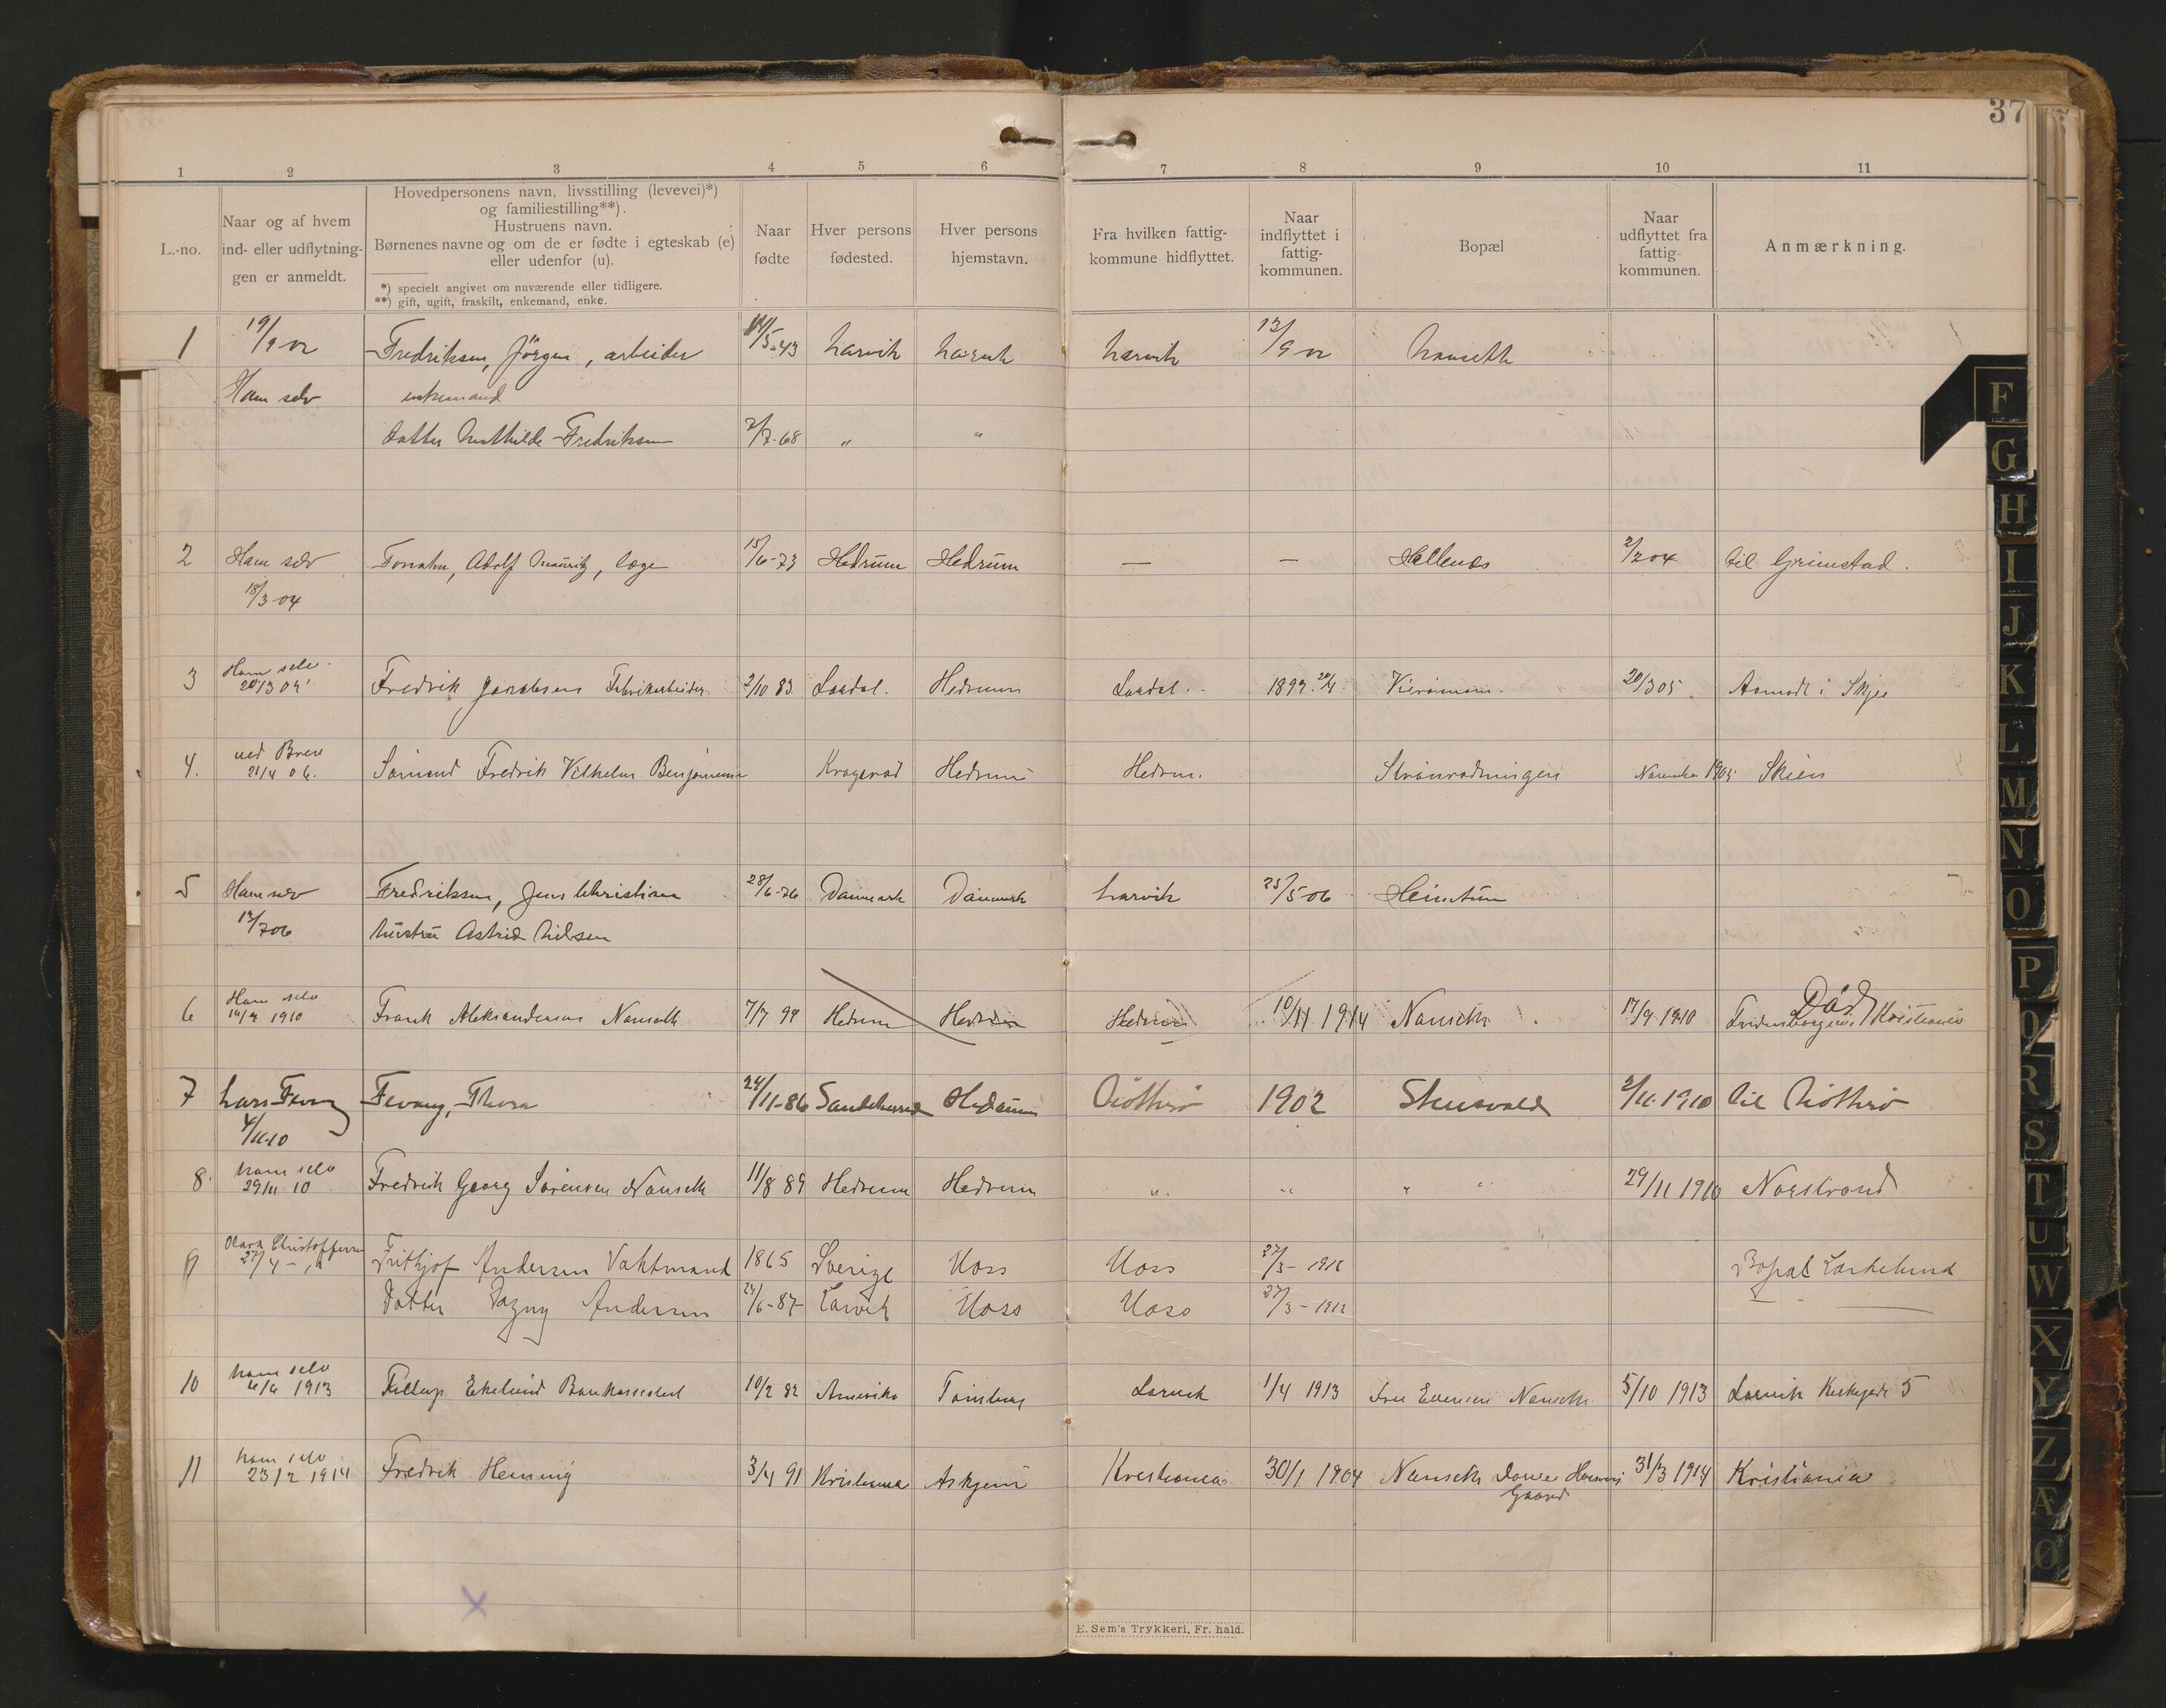 37
1 2 3 4 5 6 7 8 9 10 11
L.-no.
Naar og af hvem
ind- eller udflytning-
gen er anmeldt.
Hovedpersonens navn, livsstilling (levevei)*)
og familiestilling**).
Hustruens navn.
Børnenes navne og om de er fødte i egteskab (e)
eller udenfor (u).
*) specielt angivet om nuværende eller tidligere.
**) gift, ugift, fraskilt, enkemand, enke.
Naar
fødte
Hver persons
fødested.
Hver persons
hjemstavn.
Fra hvilken fattig-
kommune hidflyttet.
Naar
indflyttet i
fattig-
kommunen.
Bopæl
Naar
udflyttet fra
fattig-
kommunen.
Anmærkning.
1 19/9 02 Fredriksen, Jörgen, arbeider /5-43 Larvik Larvik Larvik 13/9 02 Nanseth
Ham selv enkemand
datter Mathilde Fredriksen 2/7-68 " "
2 Ham selv Fonahn, Adolf Mauritz, læge 15/6-73 Hedrum Hedrum — — Hellenes 2/2 04 til Grimstad.
18/3 04
3 Ham selv Fredrik Jacobsen Fabrikarbeider 2/10 83 Lardal. Hedrum Lardal. 1899 20/3 05
20/3 05 i Skjee
4. ved Brev Fredrik Vilhelm Benjaminsen Hedrum Hedrum. November 1905 Skien
21/4 06.
5 Ham selv Fredriksen, Jens Christian 28/6-76 Danmark Danmark Larvik 25/5-06
13/7 06 hustru Astrid Nilsen
6 Ham selv Frank Aleksandersen Nanseth 7/7 94 Hedrum Hedrum Hedrum 10/11 1914 Nanseth 17/9 1910 Död Kristiania
1910
7 Lars Fevang Fevang, Thora 24/11-86 Sandeherred Hedrum Nötterö 1902 2/11 1910 til Nötterö
4/11-10
8. ham selv Fredrik Georg Sörensen Nanseth 11/8 89 Hedrum Hedrum " " " " 29/11 1910 Norstrand
29/11 10
9 Olava Christoffersen Frithjof Andersen Vaktmand 1865 Sverige Moss Moss 27/3-1912 Bopæl
27/4 - 12
Datter Dagny Andersen 24/6-87 Larvik Moss Moss 27/3-1912
10 ham selv Fillip Ekelund 10/2 82 Amerika Tönsberg Larvik 1/4 1913 Fru Evensen Nanseth 5/10 1913 Larvik Kirkegade 5
4/4 1913
11 ham selv Fredrik Henning 3/4 91 Kristiania Askjem Kristiania 30/1 1904 Nanseth 31/3 1914 Kristiania
23/2 1914 Gaard
X
E. Sem's Trykkeri, Fr. hald.
F
G
H
I
J
K
L
M
N
O
P
Q
R
S
T
U
W
X
Y
Z
Æ
Ø